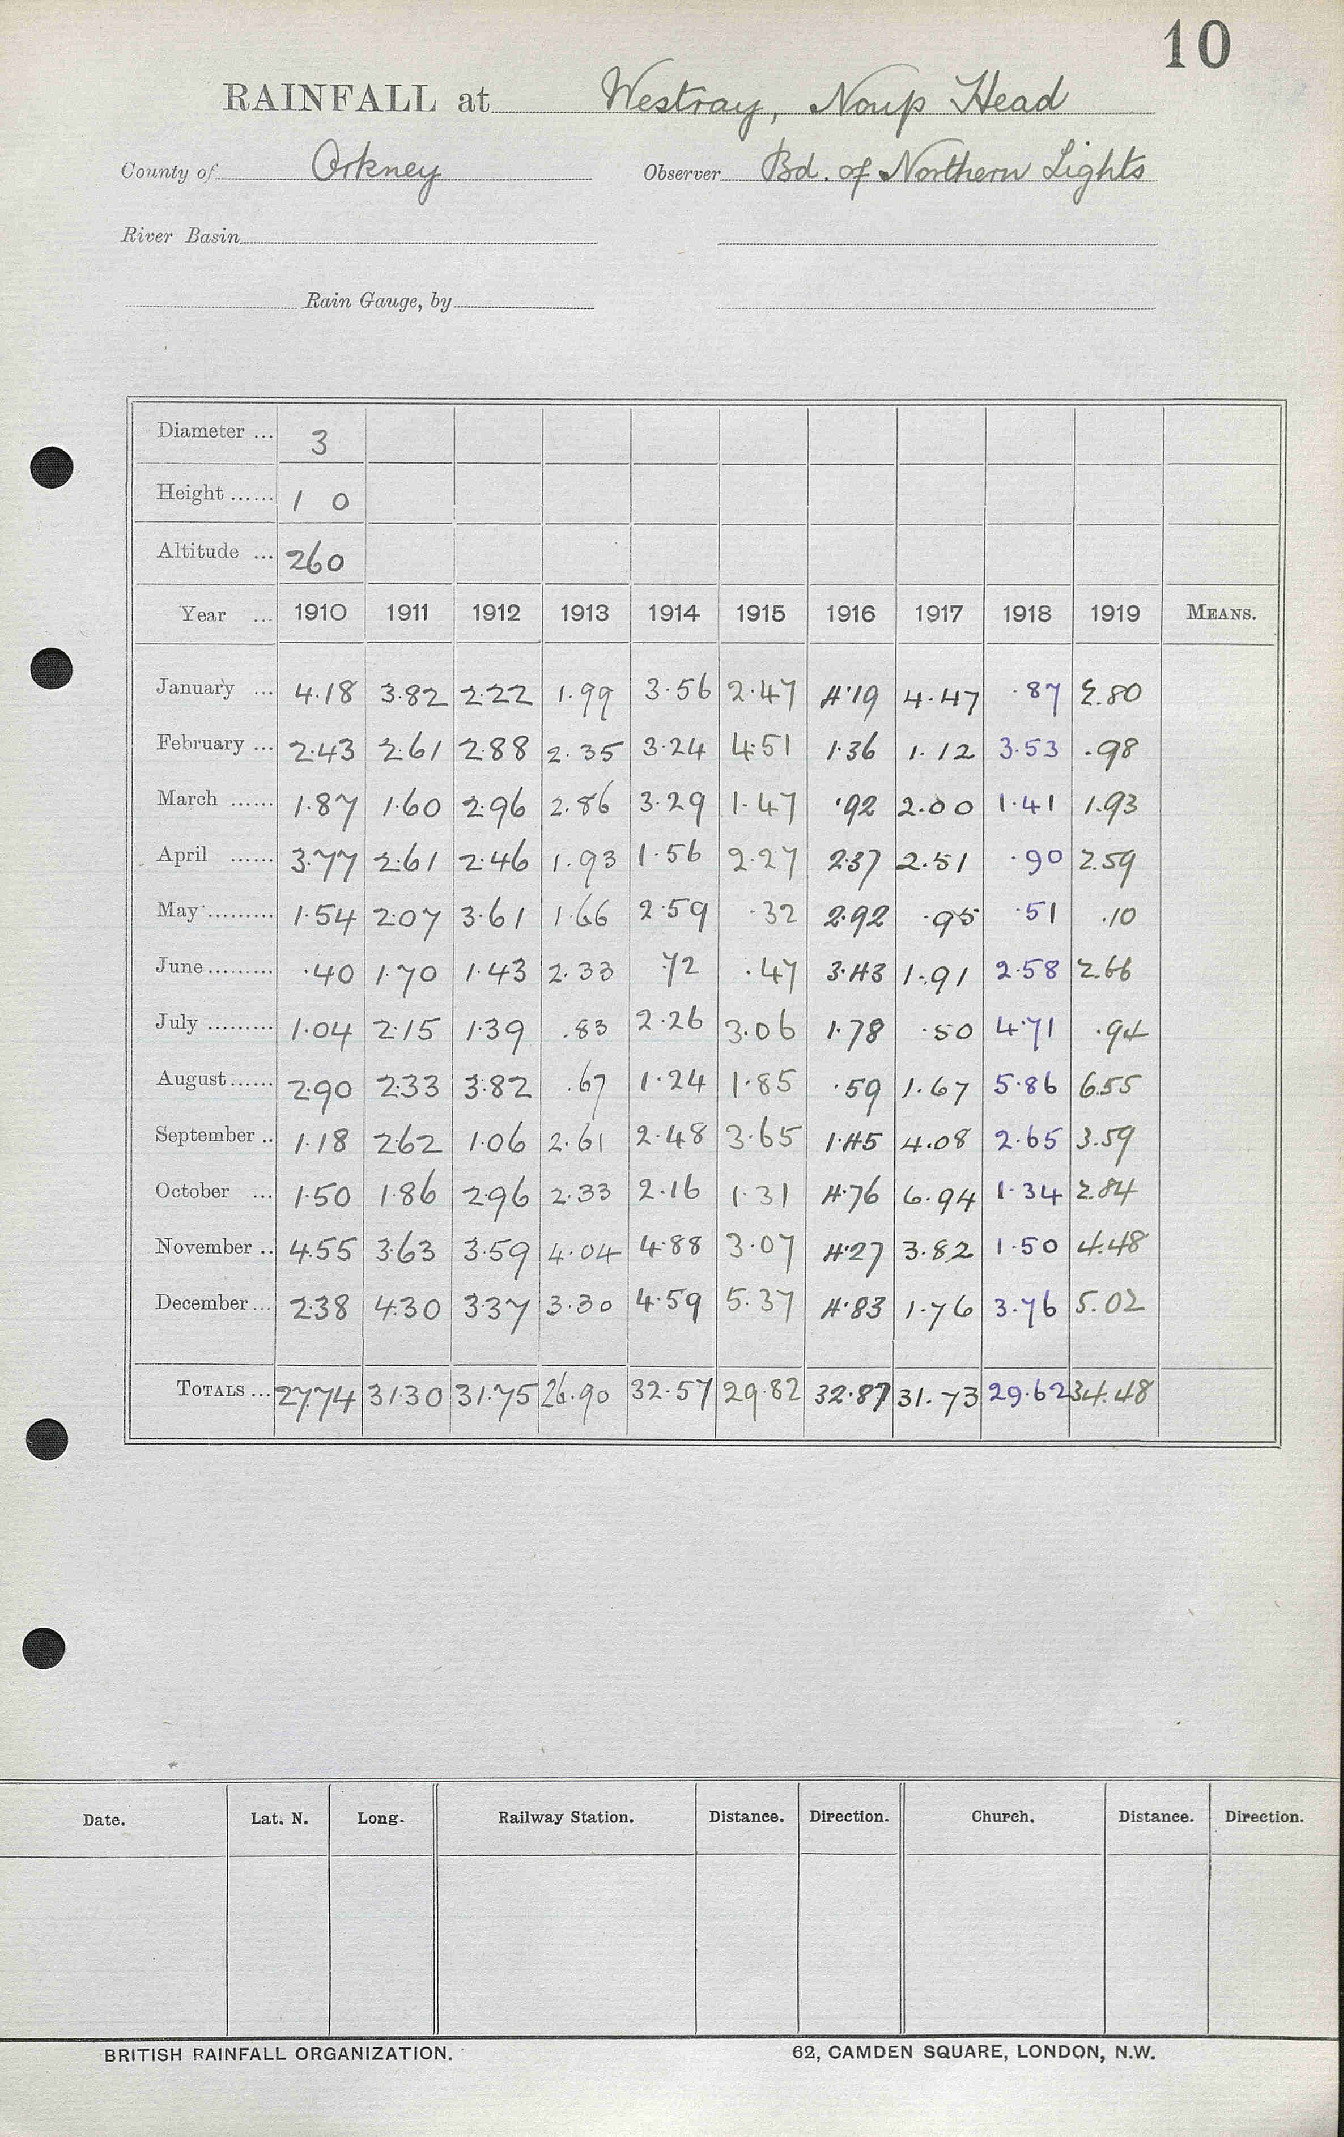 10
RAINFALL at Westray, Noup Head
County of Orkney Observer Bd. of Northern Lights
River Basin
Rain Gauge, by
Diameter ... 3
Height ...... 1 0
Altitude ... 260
Year ... 1910 1911 1912 1913 1914 1915 1916 1917 1918 1919 MEANS.
January ... 4.18 3.82 2.22 1.99 3.56 2.47 4.19 4.47 .87 2.80
February ... 2.43 2.61 2.88 2.35 3.24 4.51 1.36 1.12 3.53 .98
March ...... 1.87 1.60 2.96 2.86 3.29 1.47 .92 2.00 1.41 1.93
April ...... 3.77 2.61 2.46 1.93 1.56 2.27 2.37 2.51 .90 2.59
May ......... 1.54 2.07 3.61 1.66 2.59 .32 2.92 .95 .51 .10
June ......... .40 1.70 1.43 2.33 .72 .47 3.43 1.91 2.58 2.66
July ......... 1.04 2.15 1.39 .83 2.26 3.06 1.78 .50 4.71 .94
August ...... 2.90 2.33 3.82 .67 1.24 1.85 .59 1.67 5.86 6.55
September .. 1.18 2.62 1.06 2.61 2.48 3.65 1.45 4.08 2.65 3.59
October ... 1.50 1.86 2.96 2.33 2.16 1.31 4.76 6.94 1.34 2.84
November .. 4.55 3.63 3.59 4.04 4.88 3.07 4.27 3.82 1.50 4.48
December ... 2.38 4.30 3.37 3.30 4.59 5.37 4.83 1.76 3.76 5.02
TOTALS ... 27.74 31.30 31.75 26.90 32.57 29.82 32.87 31.73 29.62 34.48
Date. Lat. N. Long. Railway Station. Distance. Direction. Church. Distance. Direction.
BRITISH RAINFALL ORGANIZATION. 62, CAMDEN SQUARE, LONDON, N.W.